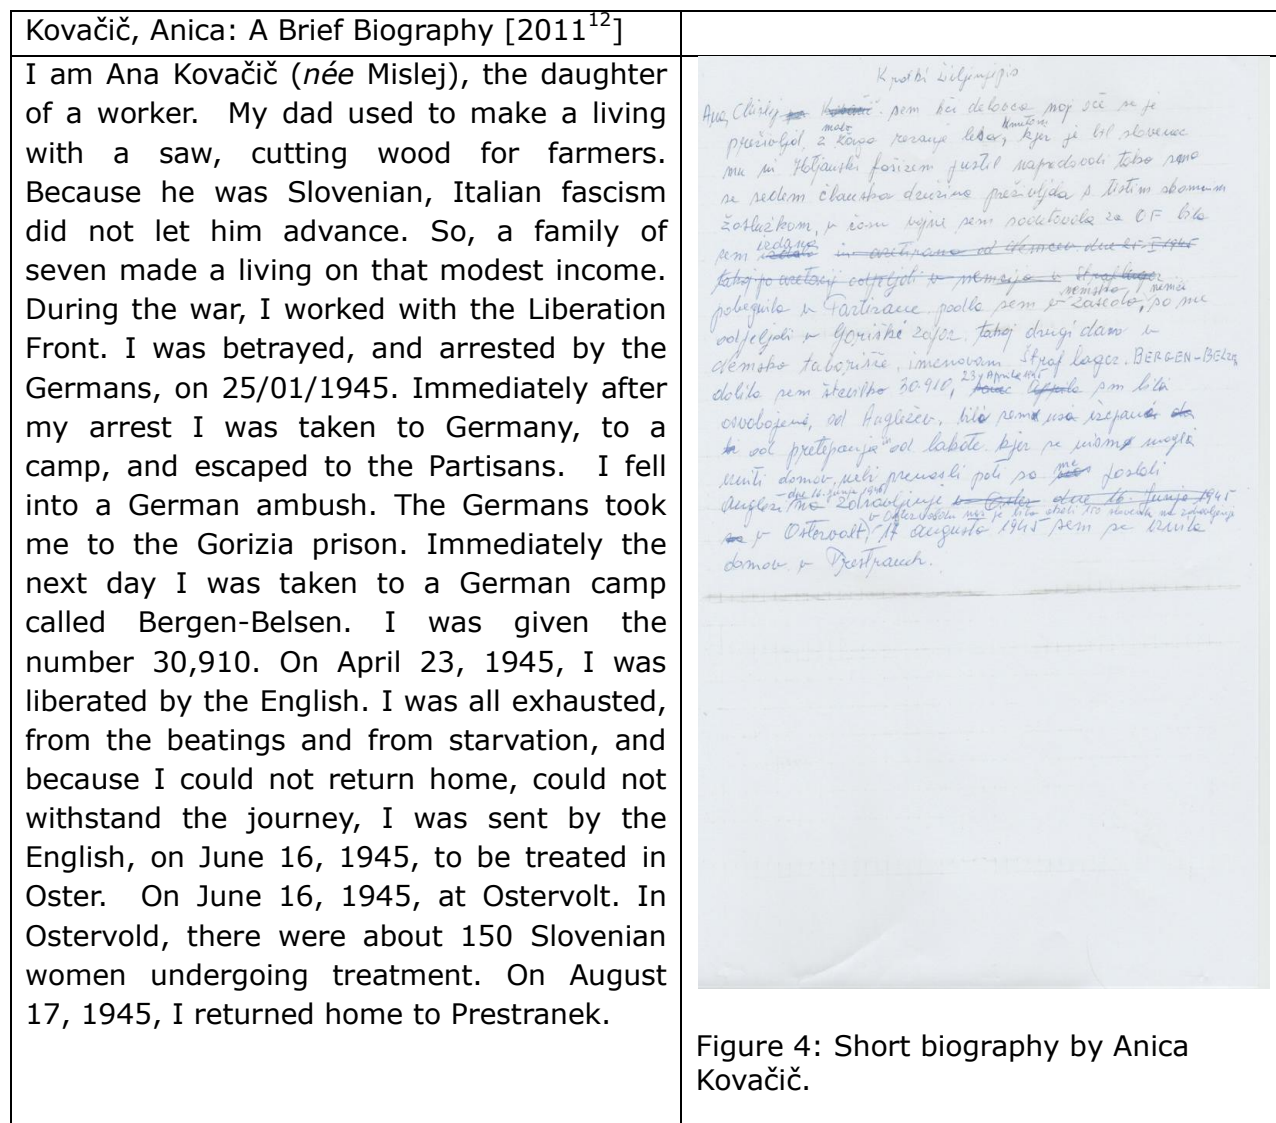 Kovačič, Anica: A Brief Biography [2011¹²]
I am Ana Kovačič (née Mislej), the daughter
of a worker. My dad used to make a living
with a saw, cutting wood for farmers.
Because he was Slovenian, Italian fascism
did not let him advance. So, a family of
seven made a living on that modest income.
During the war, I worked with the Liberation
Front. I was betrayed, and arrested by the
Germans, on 25/01/1945. Immediately after
my arrest I was taken to Germany, to a
camp, and escaped to the Partisans. I fell
into a German ambush. The Germans took
me to the Gorizia prison. Immediately the
next day I was taken to a German camp
called Bergen-Belsen. I was given the
number 30,910. On April 23, 1945, I was
liberated by the English. I was all exhausted,
from the beatings and from starvation, and
because I could not return home, could not
withstand the journey, I was sent by the
English, on June 16, 1945, to be treated in
Oster. On June 16, 1945, at Ostervolt. In
Ostervold, there were about 150 Slovenian
women undergoing treatment. On August
17, 1945, I returned home to Prestranek.
Ana sem hči delavca moj oče se je
kjer je bil slovenec
mu ni fašizem napredovati tako smo
se sedem članska družina preživljala s tistim
v času vojne sem sodelovala za OF bila
sem
pobegnila v Partizane padla sem v zasedo, so me
odpeljali v Goriške zapor. takoj drugi dan v
taborišče, imenovan Straf lager. BERGEN-
dobila sem številko 30.910, sem bila
osvobojena, od Angležev, bila sem vsa izčrpana
od pretepanja od lakote. kjer se nismo mogla
vrniti domov, poti so me poslali
Angleži na zdravljenje
v Ostervolt, 17 augusta 1945 sem se vrnila
domov v
Figure 4: Short biography by Anica
Kovačič.